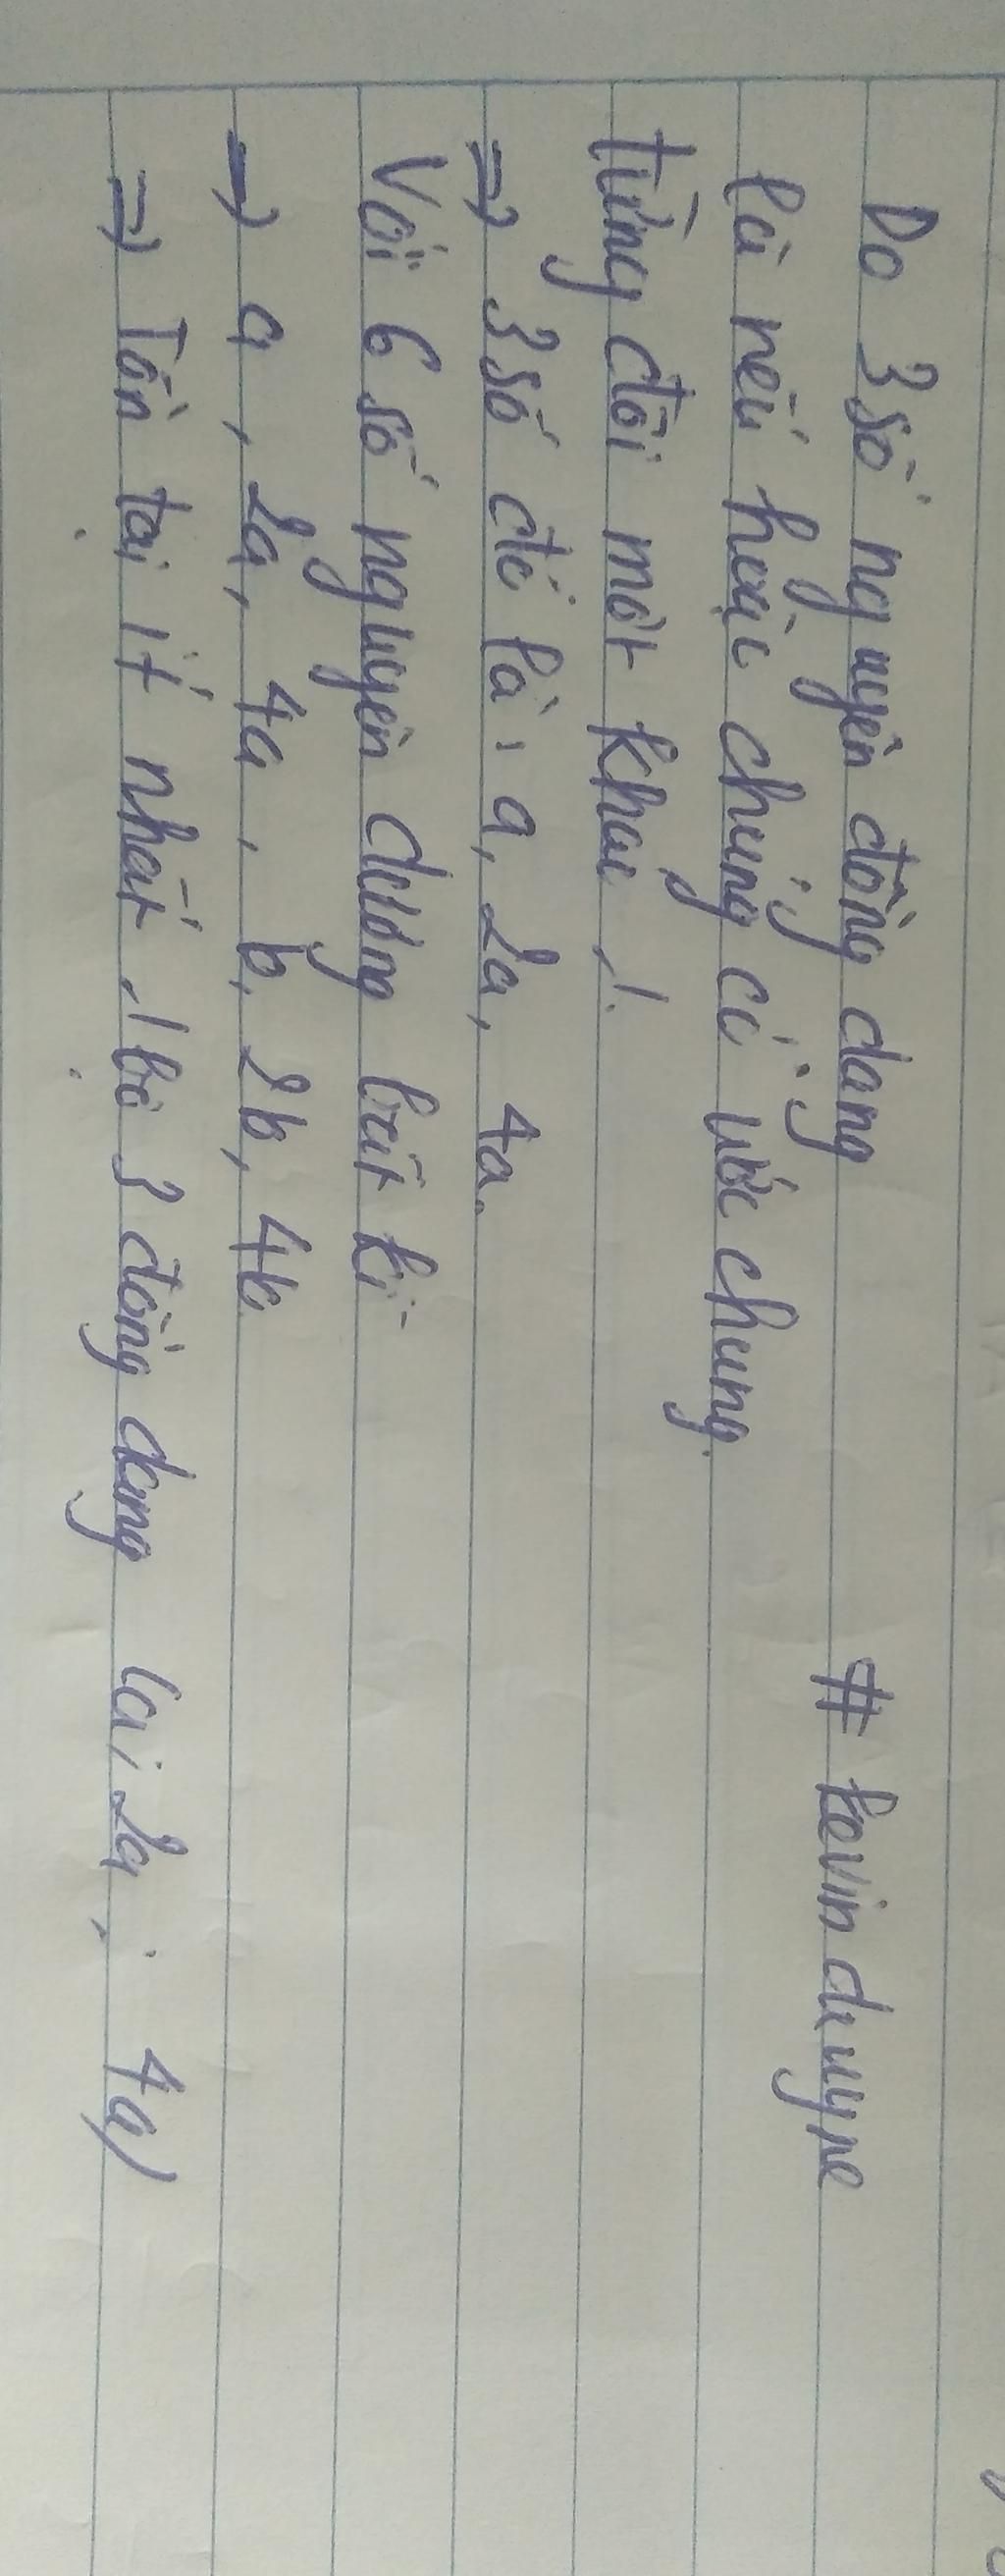 Do 3 số nguyên đồng dạng
# kevinduyne
là nếu hoặc chúng có ước chung
từng đôi một khác 1.
⇒ 3 số đó là: a, 2a, 4a.
Với 6 số nguyên dương bất kì
→ a, 2a, 4a, b, 2b, 4b.
⇒ Tồn tại ít nhất 1 bộ 3 đồng dạng (a; 2a; 4a)